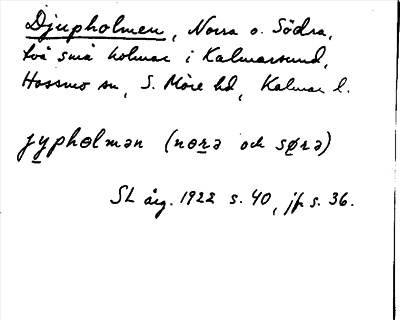 Djupholmen, Norra o. Södra,
två små holmar i Kalmarsund,
Hossmo sn, S. Möre hd, Kalmar l.
jypholmən (nɵrə och sørə)
SL årg. 1922 s. 40, jfr s. 36.